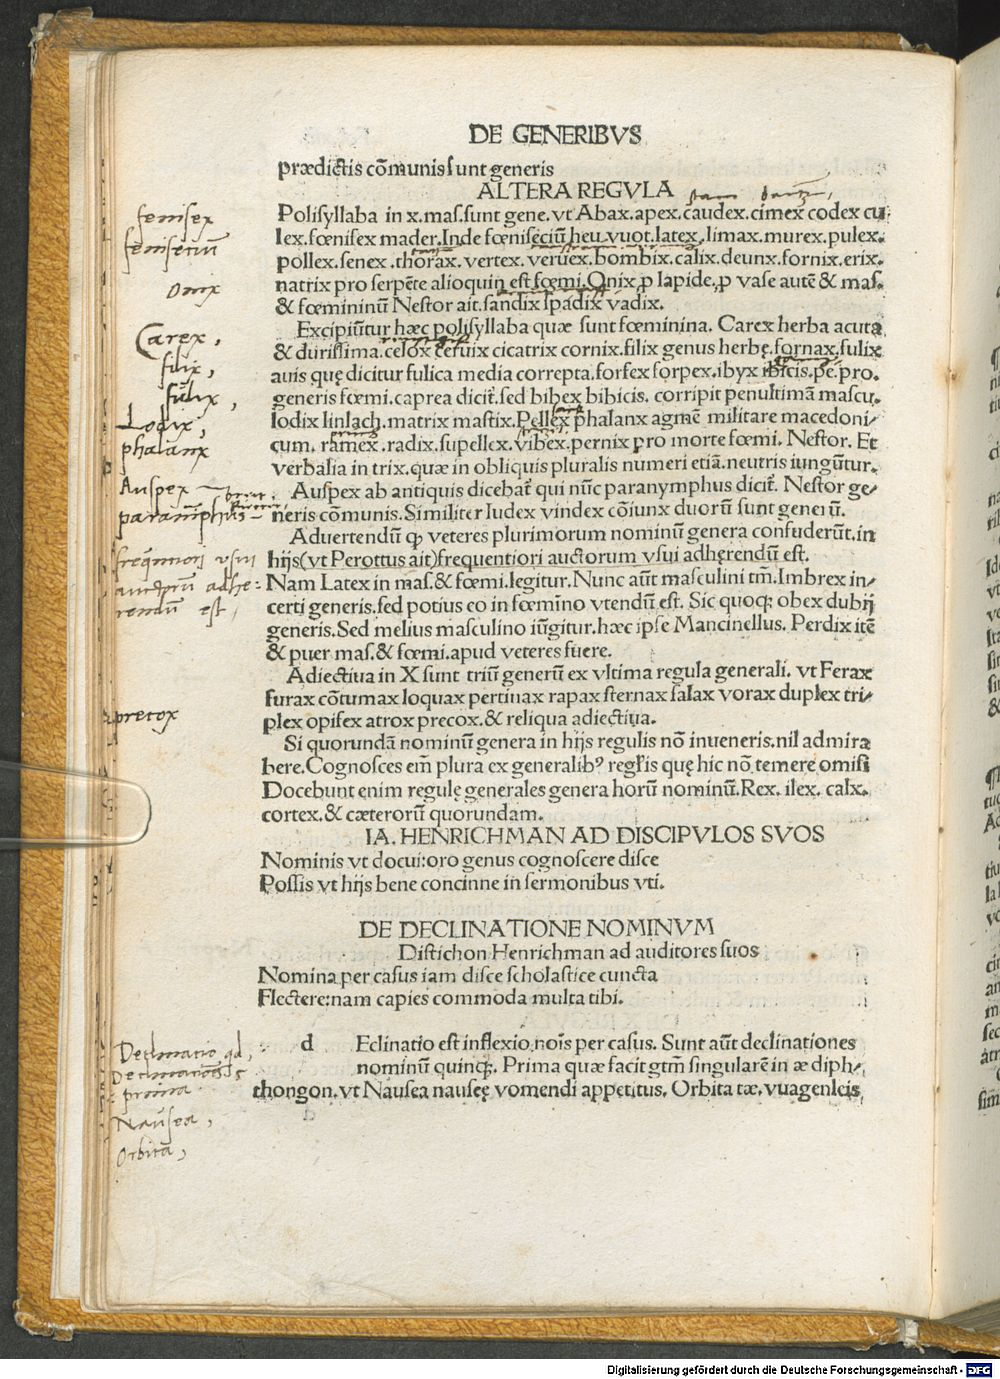 DE GENERIBVS
prædictis cōmunis sunt generis
ALTERA REGVLA
Polisyllaba in x. mas. sunt gene. vt Abax. apex. caudex. cimex codex cu
lex. fœnisex mader. Inde fœniseciū heu. vuot. latex. limax. murex. pulex.
pollex. senex. thorax. vertex. veruex. bombix. calix. deunx. fornix. erix.
natrix pro serpēte alioquin est fœmi. Onix ꝓ lapide, ꝓ vase autē & mas.
& fœmininū Nestor ait. sandix spadix vadix.
Excipiūtur hæc polisyllaba quæ sunt fœminina. Carex herba acuta
& durissima. celox ceruix cicatrix cornix. filix genus herbę. fornax. fulix
auis quę dicitur fulica media correpta. forfex forpex. ibyx ibicis. pe. pro.
generis fœmi. caprea dicit̄. sed bibex bibicis. corripit penultimā mascu.
lodix linlach. matrix mastix. Pellex phalanx agmē militare macedoni/
cum. ramex. radix. supellex. vibex. pernix pro morte fœmi. Nestor. Et
verbalia in trix. quæ in obliquis pluralis numeri etiā. neutris iungūtur.
Auspex ab antiquis dicebat̄ qui nūc paranymphus dicit̄. Nestor ge/
neris cōmunis. Similiter Iudex vindex cōiunx duorū sunt generū.
Aduertendū ꝙ veteres plurimorum nominū genera confuderūt. in
hijs (vt Perottus ait) frequentiori auctorum vsui adhęrendū est.
Nam Latex in mas. & fœmi. legitur. Nunc aūt masculini tm̄. Imbrex in/
certi generis. sed potius eo in fœmino vtendū est. Sic quoqꝫ obex dubij
generis. Sed melius masculino iūgitur. hæc ipse Mancinellus. Perdix itē
& puer mas. & fœmi. apud veteres fuere.
Adiectiua in X sunt triū generū ex vltima regula generali. vt Ferax
furax cōtumax loquax pertinax rapax sternax salax vorax duplex tri/
plex opifex atrox precox. & reliqua adiectiua.
Si quorundā nominū genera in hijs regulis nō inueneris. nil admira
bere. Cognosces em̄ plura ex generalibꝰ regl̄is quę hic nō temere omisi
Docebunt enim regulę generales genera horū nominū. Rex. ilex. calx.
cortex. & cæterorū quorundam.
IA. HENRICHMAN AD DISCIPVLOS SVOS
Nominis vt docui: oro genus cognoscere disce
Possis vt hijs bene concinne in sermonibus vti.
DE DECLINATIONE NOMINVM
Distichon Henrichman ad auditores suos
Nomina per casus iam disce scholastice cuncta
Flectere: nam capies commoda multa tibi.
d Eclinatio est inflexio nois̄ per casus. Sunt aūt declinationes
nominū quinqꝫ. Prima quæ facit gtm̄ singularē in æ diph/
thongon. vt Nausea nauseę vomendi appetitus. Orbita tæ. vuagenleis
d
fenisex
feniseciū
onix
Carex,
filix,
fulix,
Lodix,
phalanx
Auspex
paranīphus
freq̄ntiori vsui
auctorū adhe:
rendū est,
precox
Declinatio qd,
Declinationes 5
prima
Nausea,
Orbita,